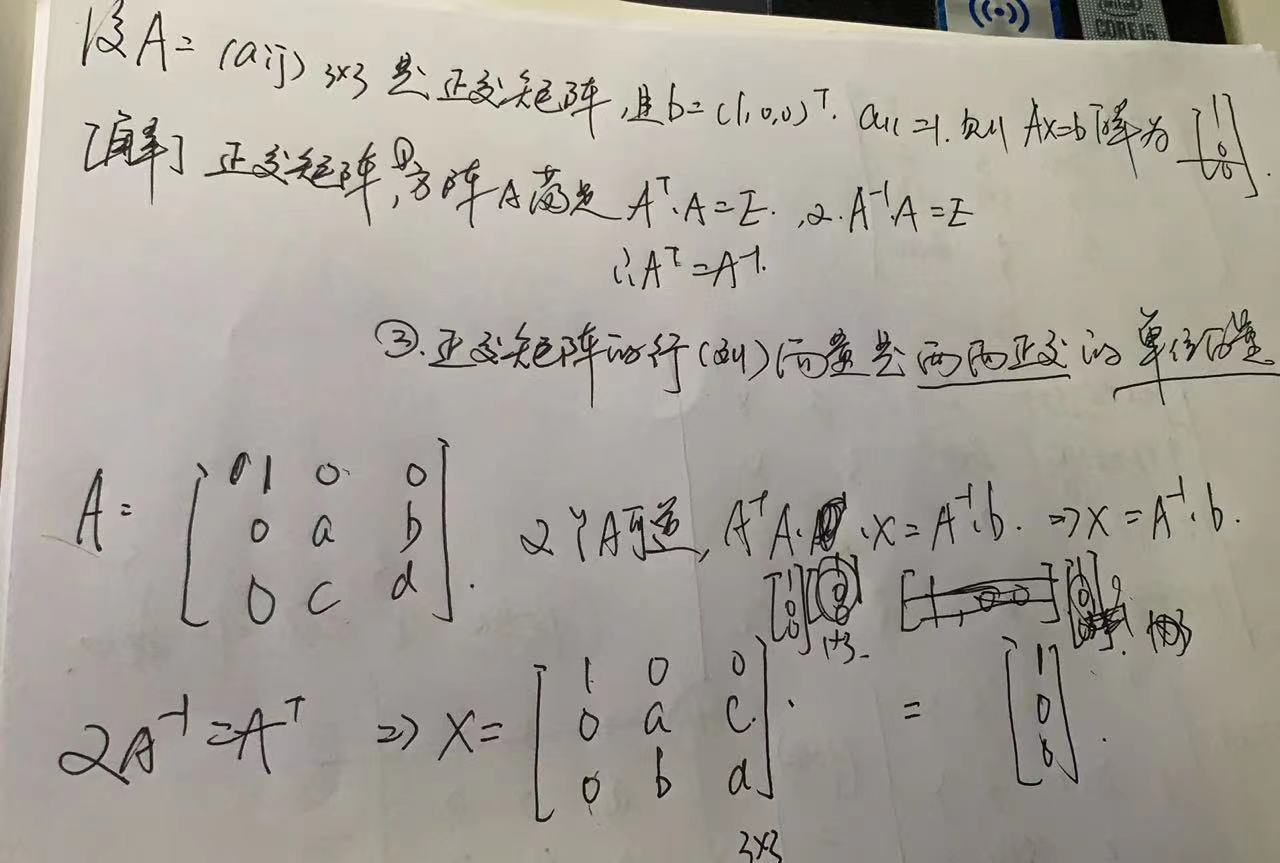 CORE i5
设A=(aij)3×3是正交矩阵,且b=(1,0,0)ᵀ. a11=1.则Ax=b解为[1 0 0].
[解] 正交矩阵,①方阵A满足Aᵀ·A=E.,又.A⁻¹·A=E
∴Aᵀ=A⁻¹.
③.正交矩阵的行(列)向量是两两正交的单位向量
A=[1 0 0
0 a b
0 c d].
又∵A可逆, A⁻¹A·x=A⁻¹·b. ⇒x=A⁻¹·b.
1×3
又A⁻¹=Aᵀ ⇒x=[1 0 0
0 a c
0 b d]· =[1 0 0].
3×3